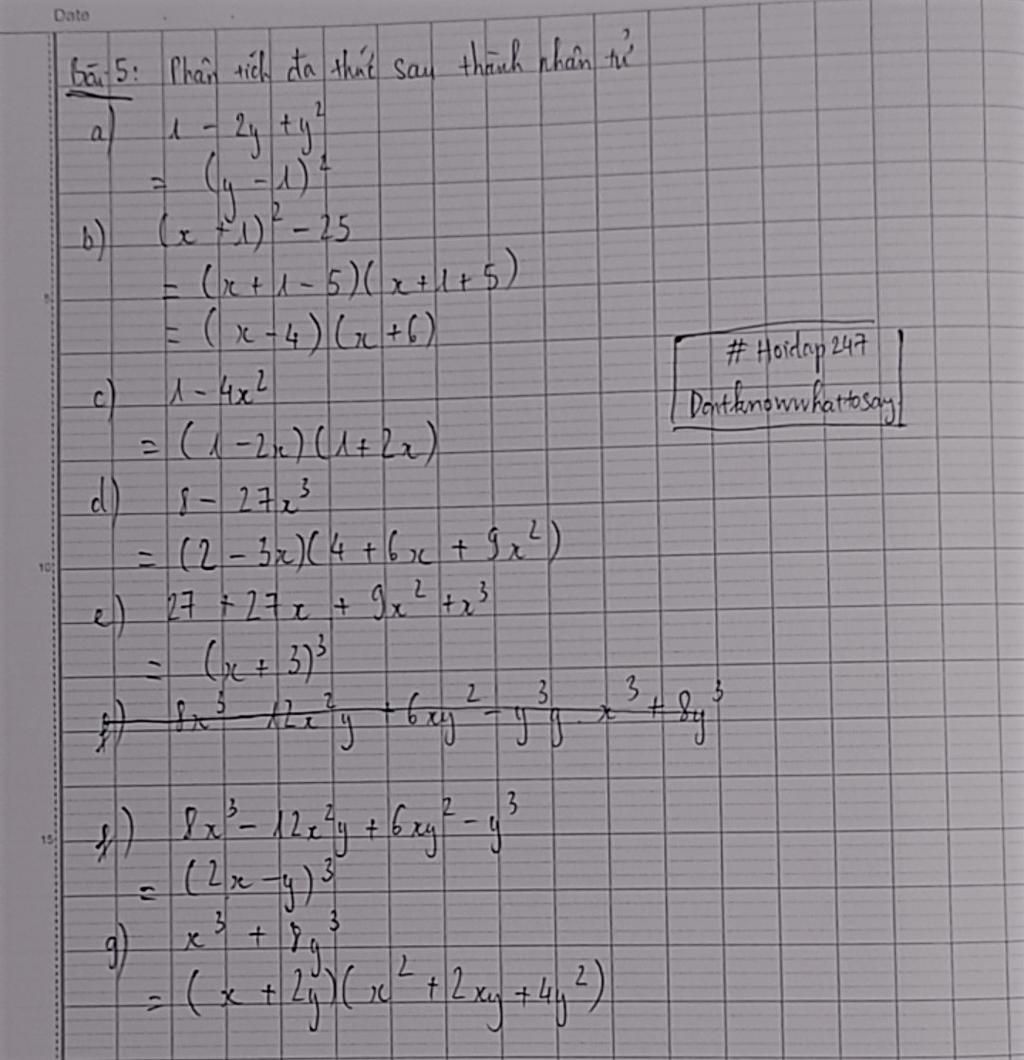 Date
Bài 5: Phân tích đa thức sau thành nhân tử
a) 1 - 2y + y²
= (y - 1)²
b) (x + 1)² - 25
= (x + 1 - 5)(x + 1 + 5)
= (x - 4)(x + 6)
# Hoidap247
Dontknowwhattosay
c) 1 - 4x²
= (1 - 2x)(1 + 2x)
d) 8 - 27x³
= (2 - 3x)(4 + 6x + 9x²)
10
e) 27 + 27x + 9x² + x³
= (x + 3)³
f) 8x³ - 12x²y + 6xy² - y³ g x³ + 8y³
15
f) 8x³ - 12x²y + 6xy² - y³
= (2x - y)³
g) x³ + 8y³
= (x + 2y)(x² + 2xy + 4y²)